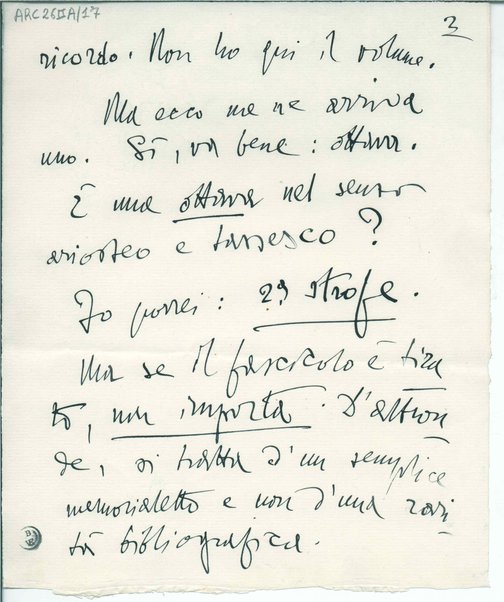 ARC26IIA/17
3
ricordo. Non ho qui il volume.
Ma ecco me ne arriva
uno. Sì, va bene: ottava.
È una ottava nel senso
ariosteo e tassesco?
Io porrei: 2ª strofe.
Ma se il fascicolo è tira
to, non importa. D'altron
de, si tratta d'un semplice
memorialetto e non d'una rari
tà bibliografica.